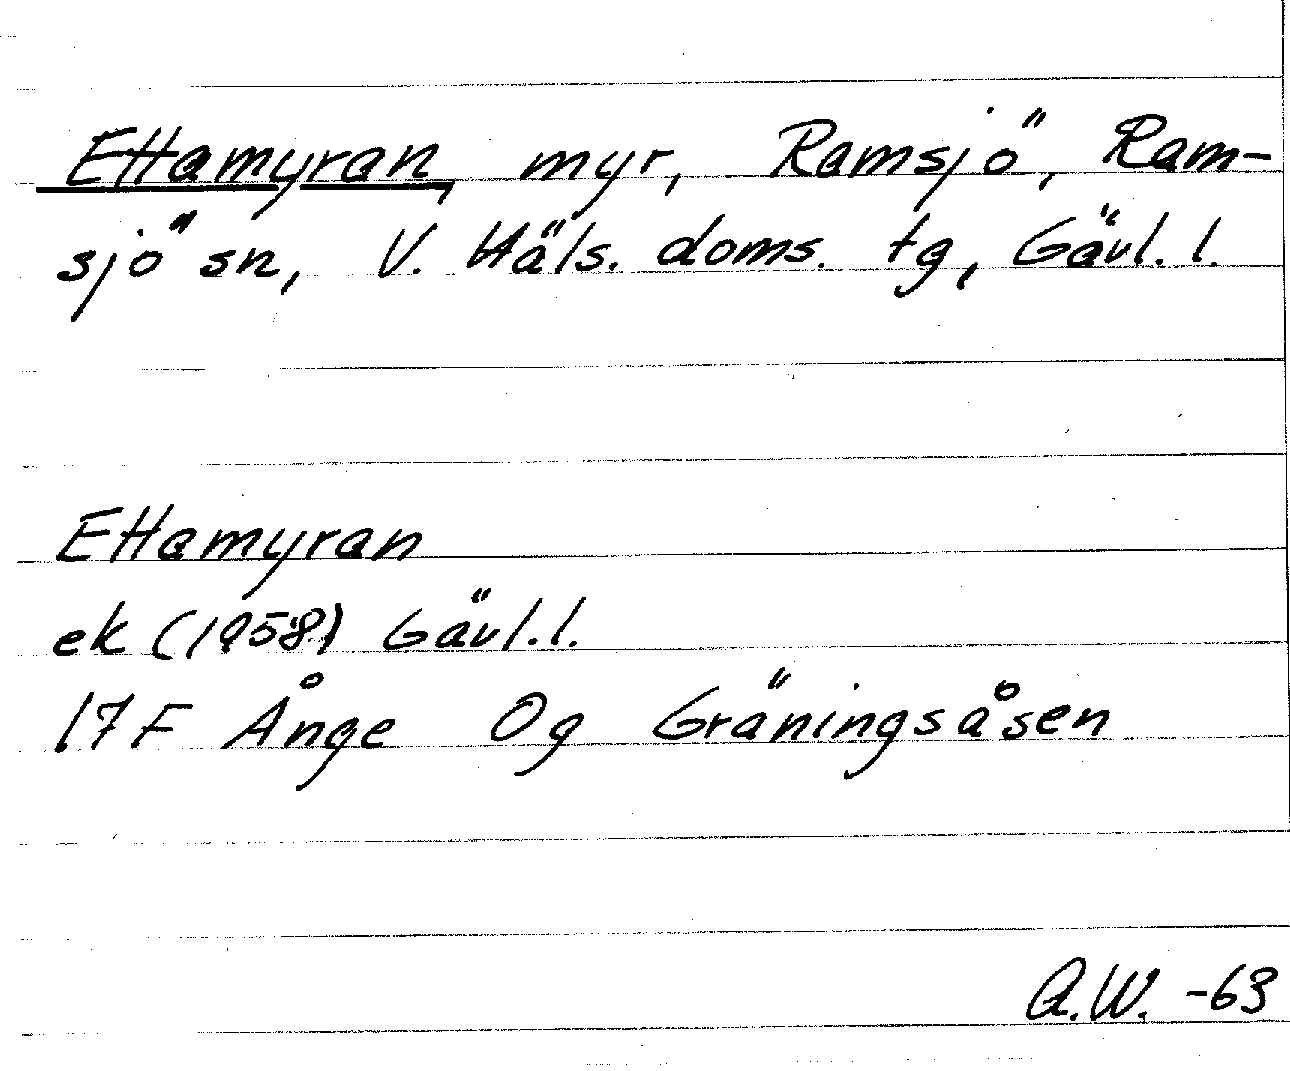 Ettamyran, myr, Ramsjö, Ram-
sjö sn, V. Häls. doms. tg, Gävl. l.
Ettamyran
ek (1958) Gävl. l.
17F Ånge Og Gräningsåsen
A.W. -63